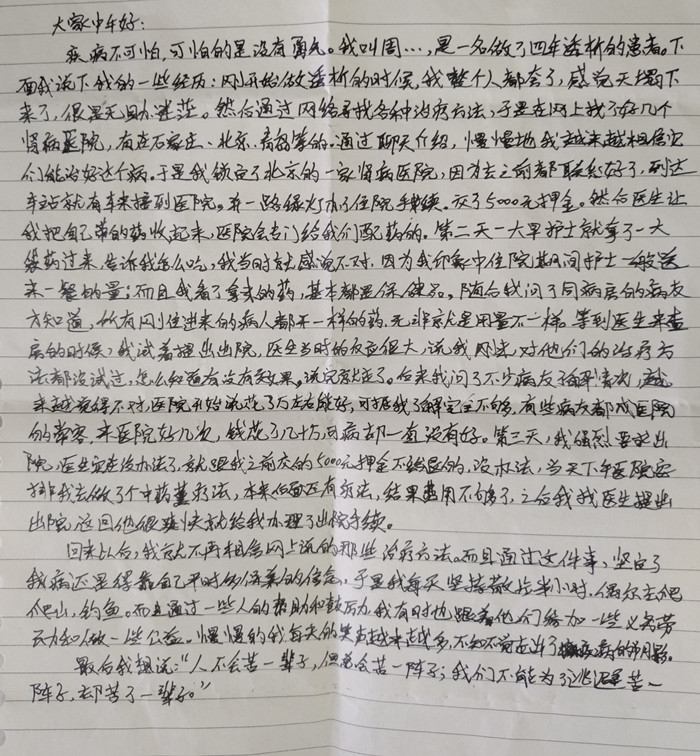 大家中午好：
疾病不可怕，可怕的是没有勇气。我叫周…，是一名做了四年透析的患者。下
面我说下我的一些经历：刚开始做透析的时候，我整个人都夸了，感觉天塌下
来了，很是无助迷茫。然后通过网络寻找各种治疗方法，于是在网上找了好几个
肾病医院，有在石家庄、北京、青岛等的。通过聊天介绍，慢慢地我越来越相信它
们能治好这个病。于是我锁定了北京的一家肾病医院，因为去之前都联系好了，到达
车站就有车来接到医院。并一路绿灯办了住院手续。交了5000元押金。然后医生让
我把自己带的药收起来，医院会专门给我们配药的。第二天一大早护士就拿了一大
袋药过来，告诉我怎么吃，我当时就感觉不对，因为我印象中住院期间护士一般送
来一餐的量；而且我看了拿来的药，基本都是保健品。随后我问了同病房的病友
方知道，所有刚住进来的病人都开一样的药，无非就是用量不一样。等到医生来查
房的时候，我试着提出出院，医生当时的反应很大，说我刚来，对他们的治疗方
法都没试过，怎么知道有没有效果。说完就走了。后来我问了不少病友了解情况，越
来越觉得不对，医院开始说花了万左右能好，可据我了解完全不够，有些病友都成医院
的常客，来医院好几次，钱花了几十万，可病却一直没有好。第三天，我强烈要求出
院，医生实在没办法了，就跟我之前交的5000元押金不给退的，没办法，当天下午医院安
排我去做了个中药薰疗法，本来后面还有疗法，结果费用不够了，之后我找医生提出
出院，这回他很爽快就给我办理了出院手续。
回来以后，我就不再相信网上说的那些治疗方法。而且通过这件事，坚定了
我病还是得靠自己平时的保养的信念，于是我每天坚持散步半小时，偶尔去爬
爬山，钓鱼。而且通过一些人的帮助和鼓励，我有时也跟着他们参加一些义务劳
动和做一些公益。慢慢的我每天的笑声越来越多，不知不觉走出了病的阴影。
最后我想说：“人不会苦一辈子，但总会苦一阵子；我们不能为了逃避苦一
阵子，却苦了一辈子。”